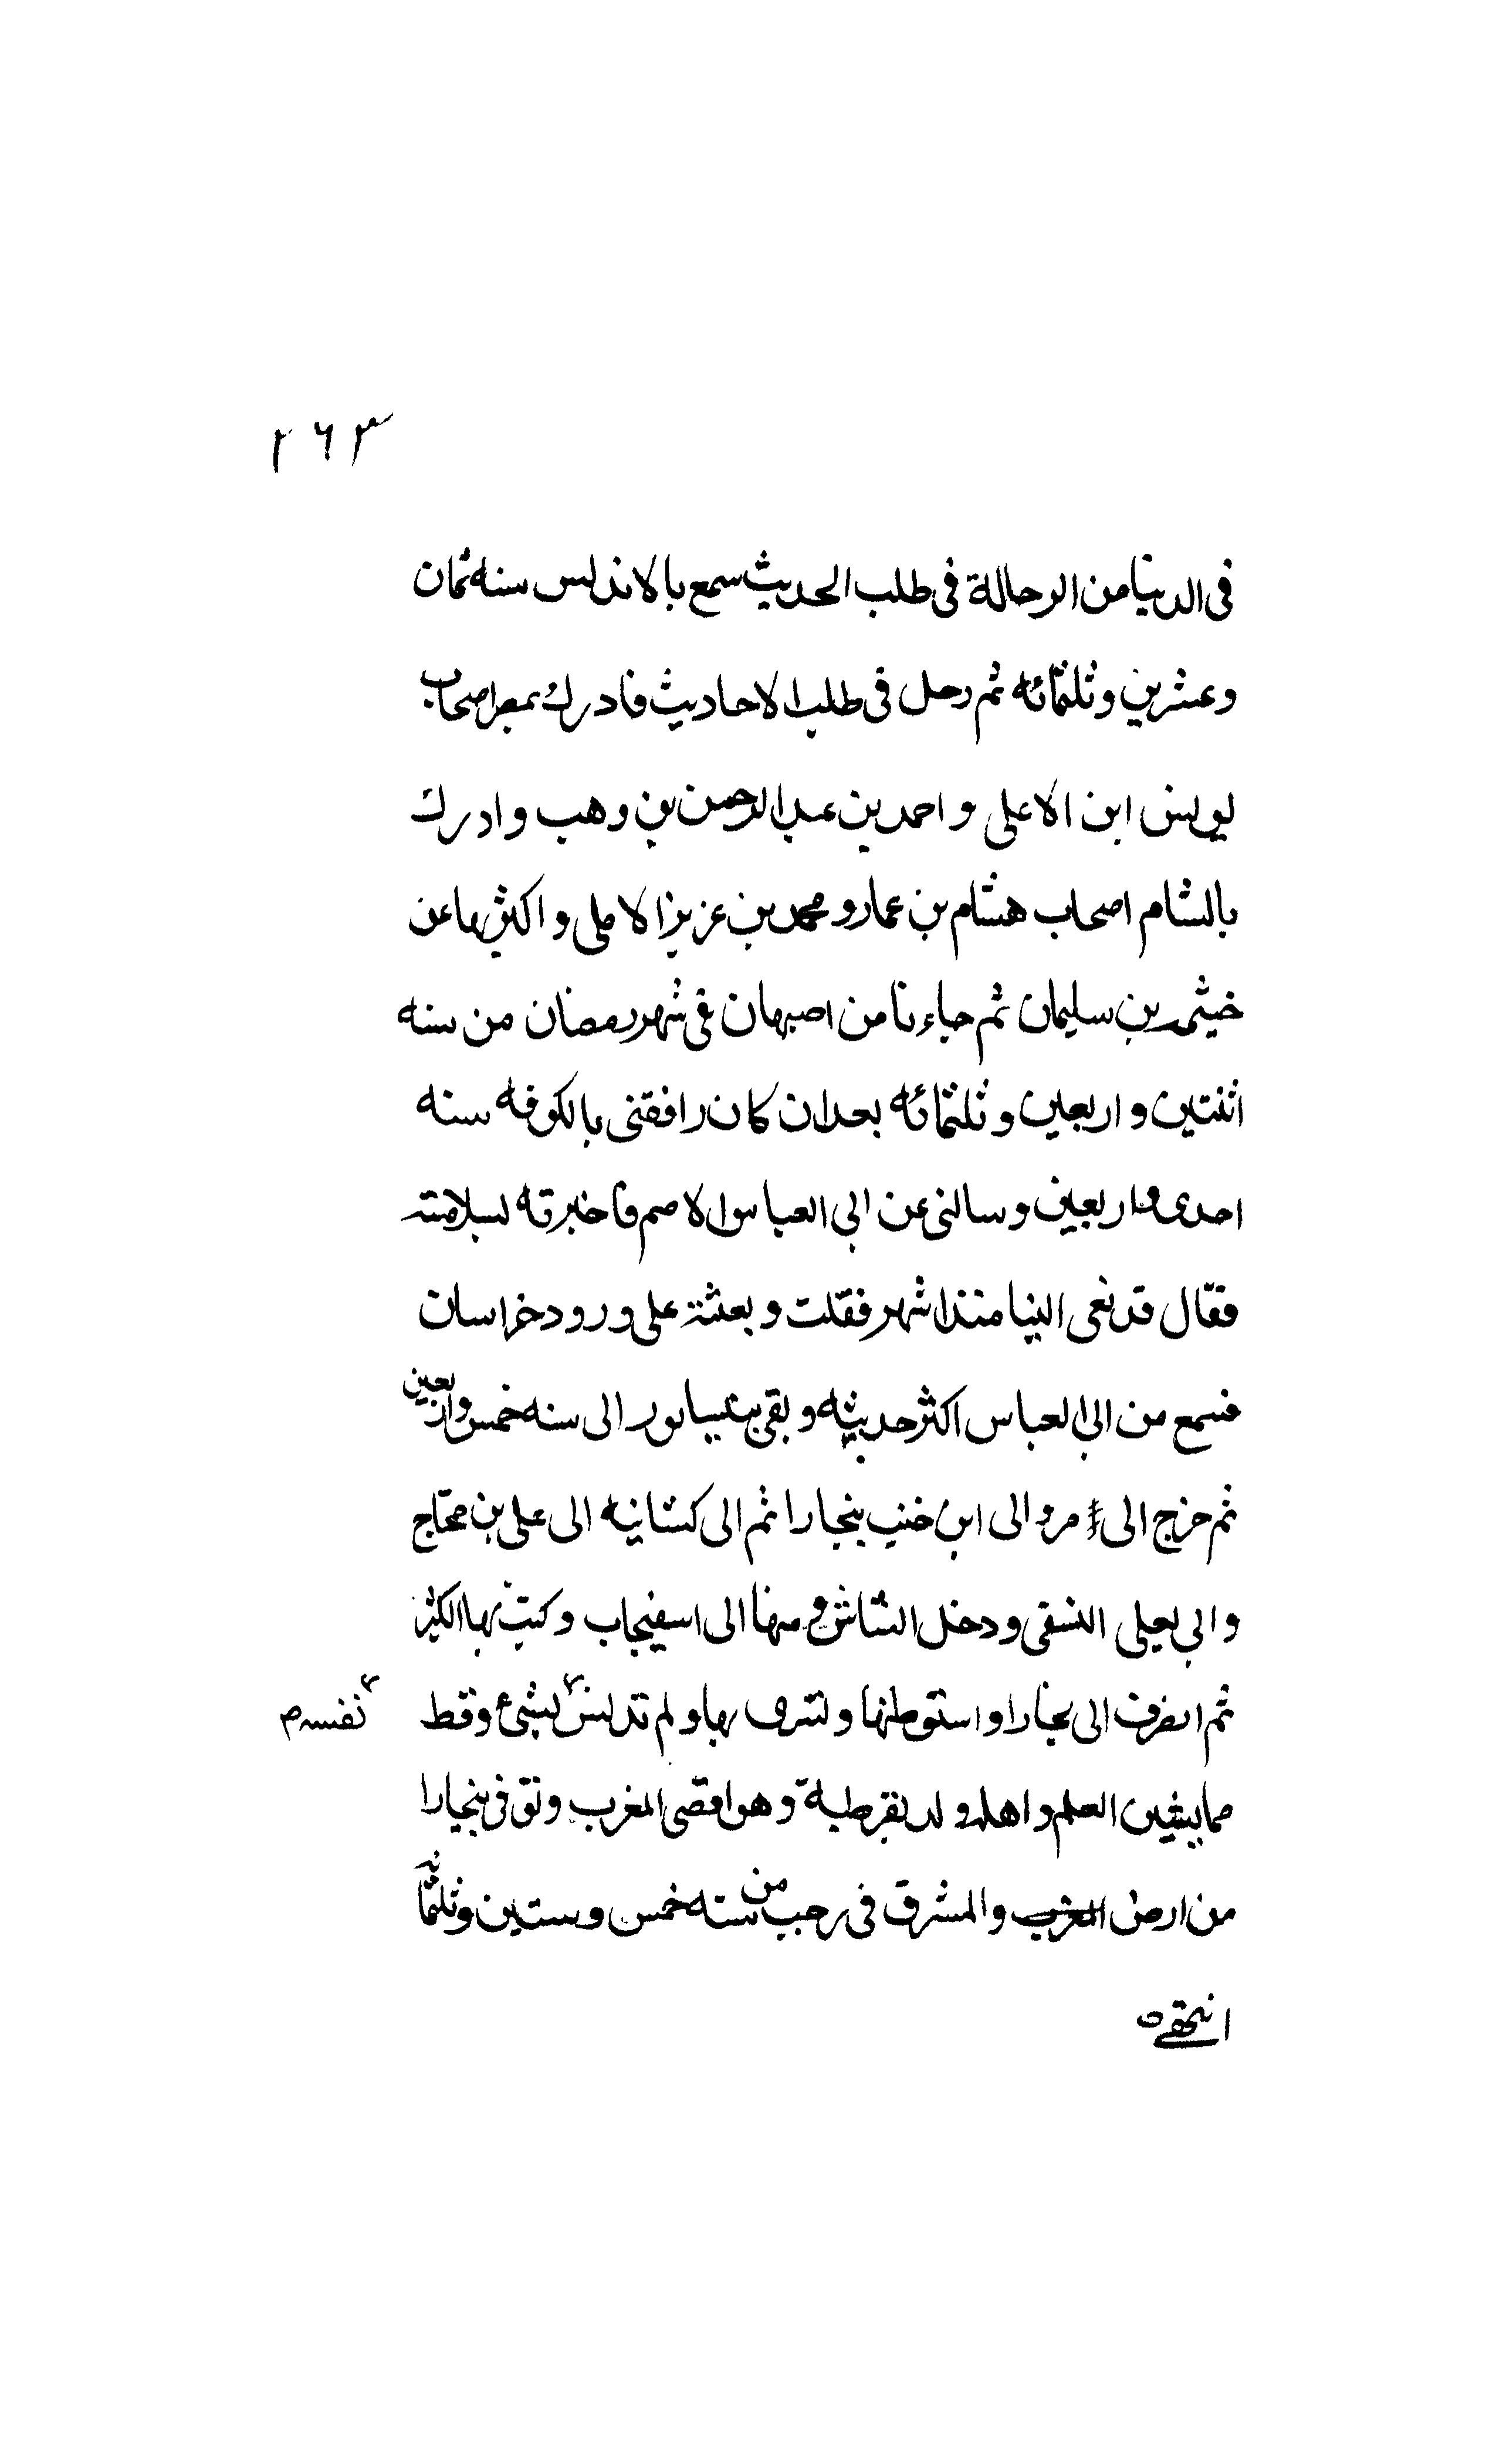 ٢٦٣
فى الدنيا من الرحالة فى طلب الحديث سمع بالاندلس سنه ثمان
وعشرين وثلثمائه ثم رحل فى طلب الاحاديث فادرك بمصر اصحاب
يونس ابن الاعلى و احمد بن عبد الرحمن بن وهب و ادرك
بالشام اصحاب هشام بن عمار و محمد بن عزيز الاملى و اكثر بها عن
خيثمه بن سليمان ثم جاءنا من اصبهان فى شهر رمضان من سنه
اثنتين و اربعين و ثلثمائه بعد ان كان رافقنى بالكوفه سنه
احدى واربعين وسالنى عن ابى العباس الاصم فاخبرته بسلامته
فقال قد نعى الينا منذ اشهر فقلت و بعثته على ورود خراسان
فسمع من ابى العباس اكثر حديثه و بقى بنيسابور الى سنه خمس واربعين
ثم خرج الى مرو الى ابن خنب ببخارا ثم الى كشانيه الى على بن محتاج
و ابى يعلى النسفى ودخل الشاش و منها الى اسفيجاب و كتب بها الكثير
ثم انصرف الى بخارا و استوطنها و لتسرى بها و لم تدنس بشئ وقط
نفسه م
مما يشين العلم و اهله و لد بقرطبة و هو اقصى المغرب و توفى ببخارا
من ارض المغرب والمشرق فى رجب من سنه خمس وستين وثلثمائه
انتهى ه